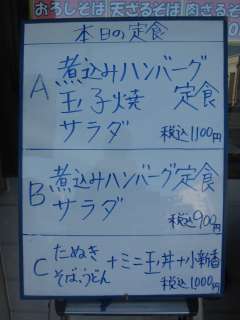 おろしそば 天ざるそば 肉さるそば
本日の定食
A 煮込みハンバーグ
玉子焼 定食
サラダ 税込1100円
B 煮込みハンバーグ定食
サラダ 税込900円
C たぬき
そば、うどん +ミニ玉丼+小新香
税込1,000円